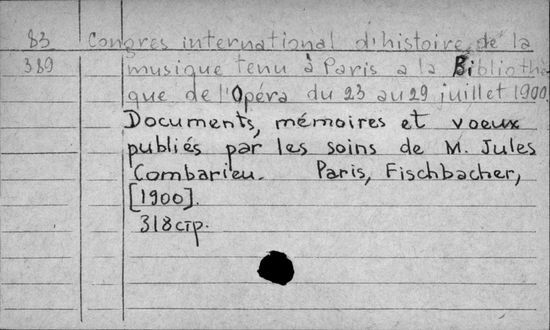 83 Congres international d'histoire de la
389 musique tenu à Paris a la Bibliothè
que de l'Opéra du 23 au 29 juillet 1900.
Documents, mémoires et voeux
publiés par les soins de M. Jules
Combarieu. Paris, Fischbacher,
[1900].
318стр.